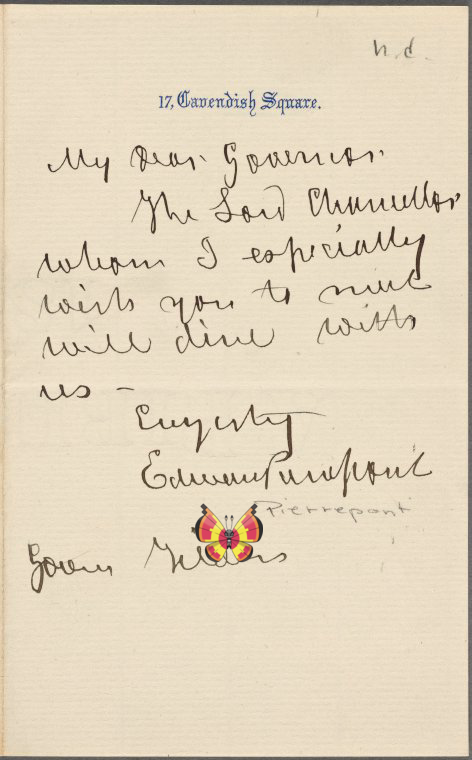 n.d.
17, Cavendish Square.
My dear Governor.
The Lord Chancellor
whom I especially
wish you to meet
will dine with
us –
Edwards Pierrepont
Pierrepont
Govern